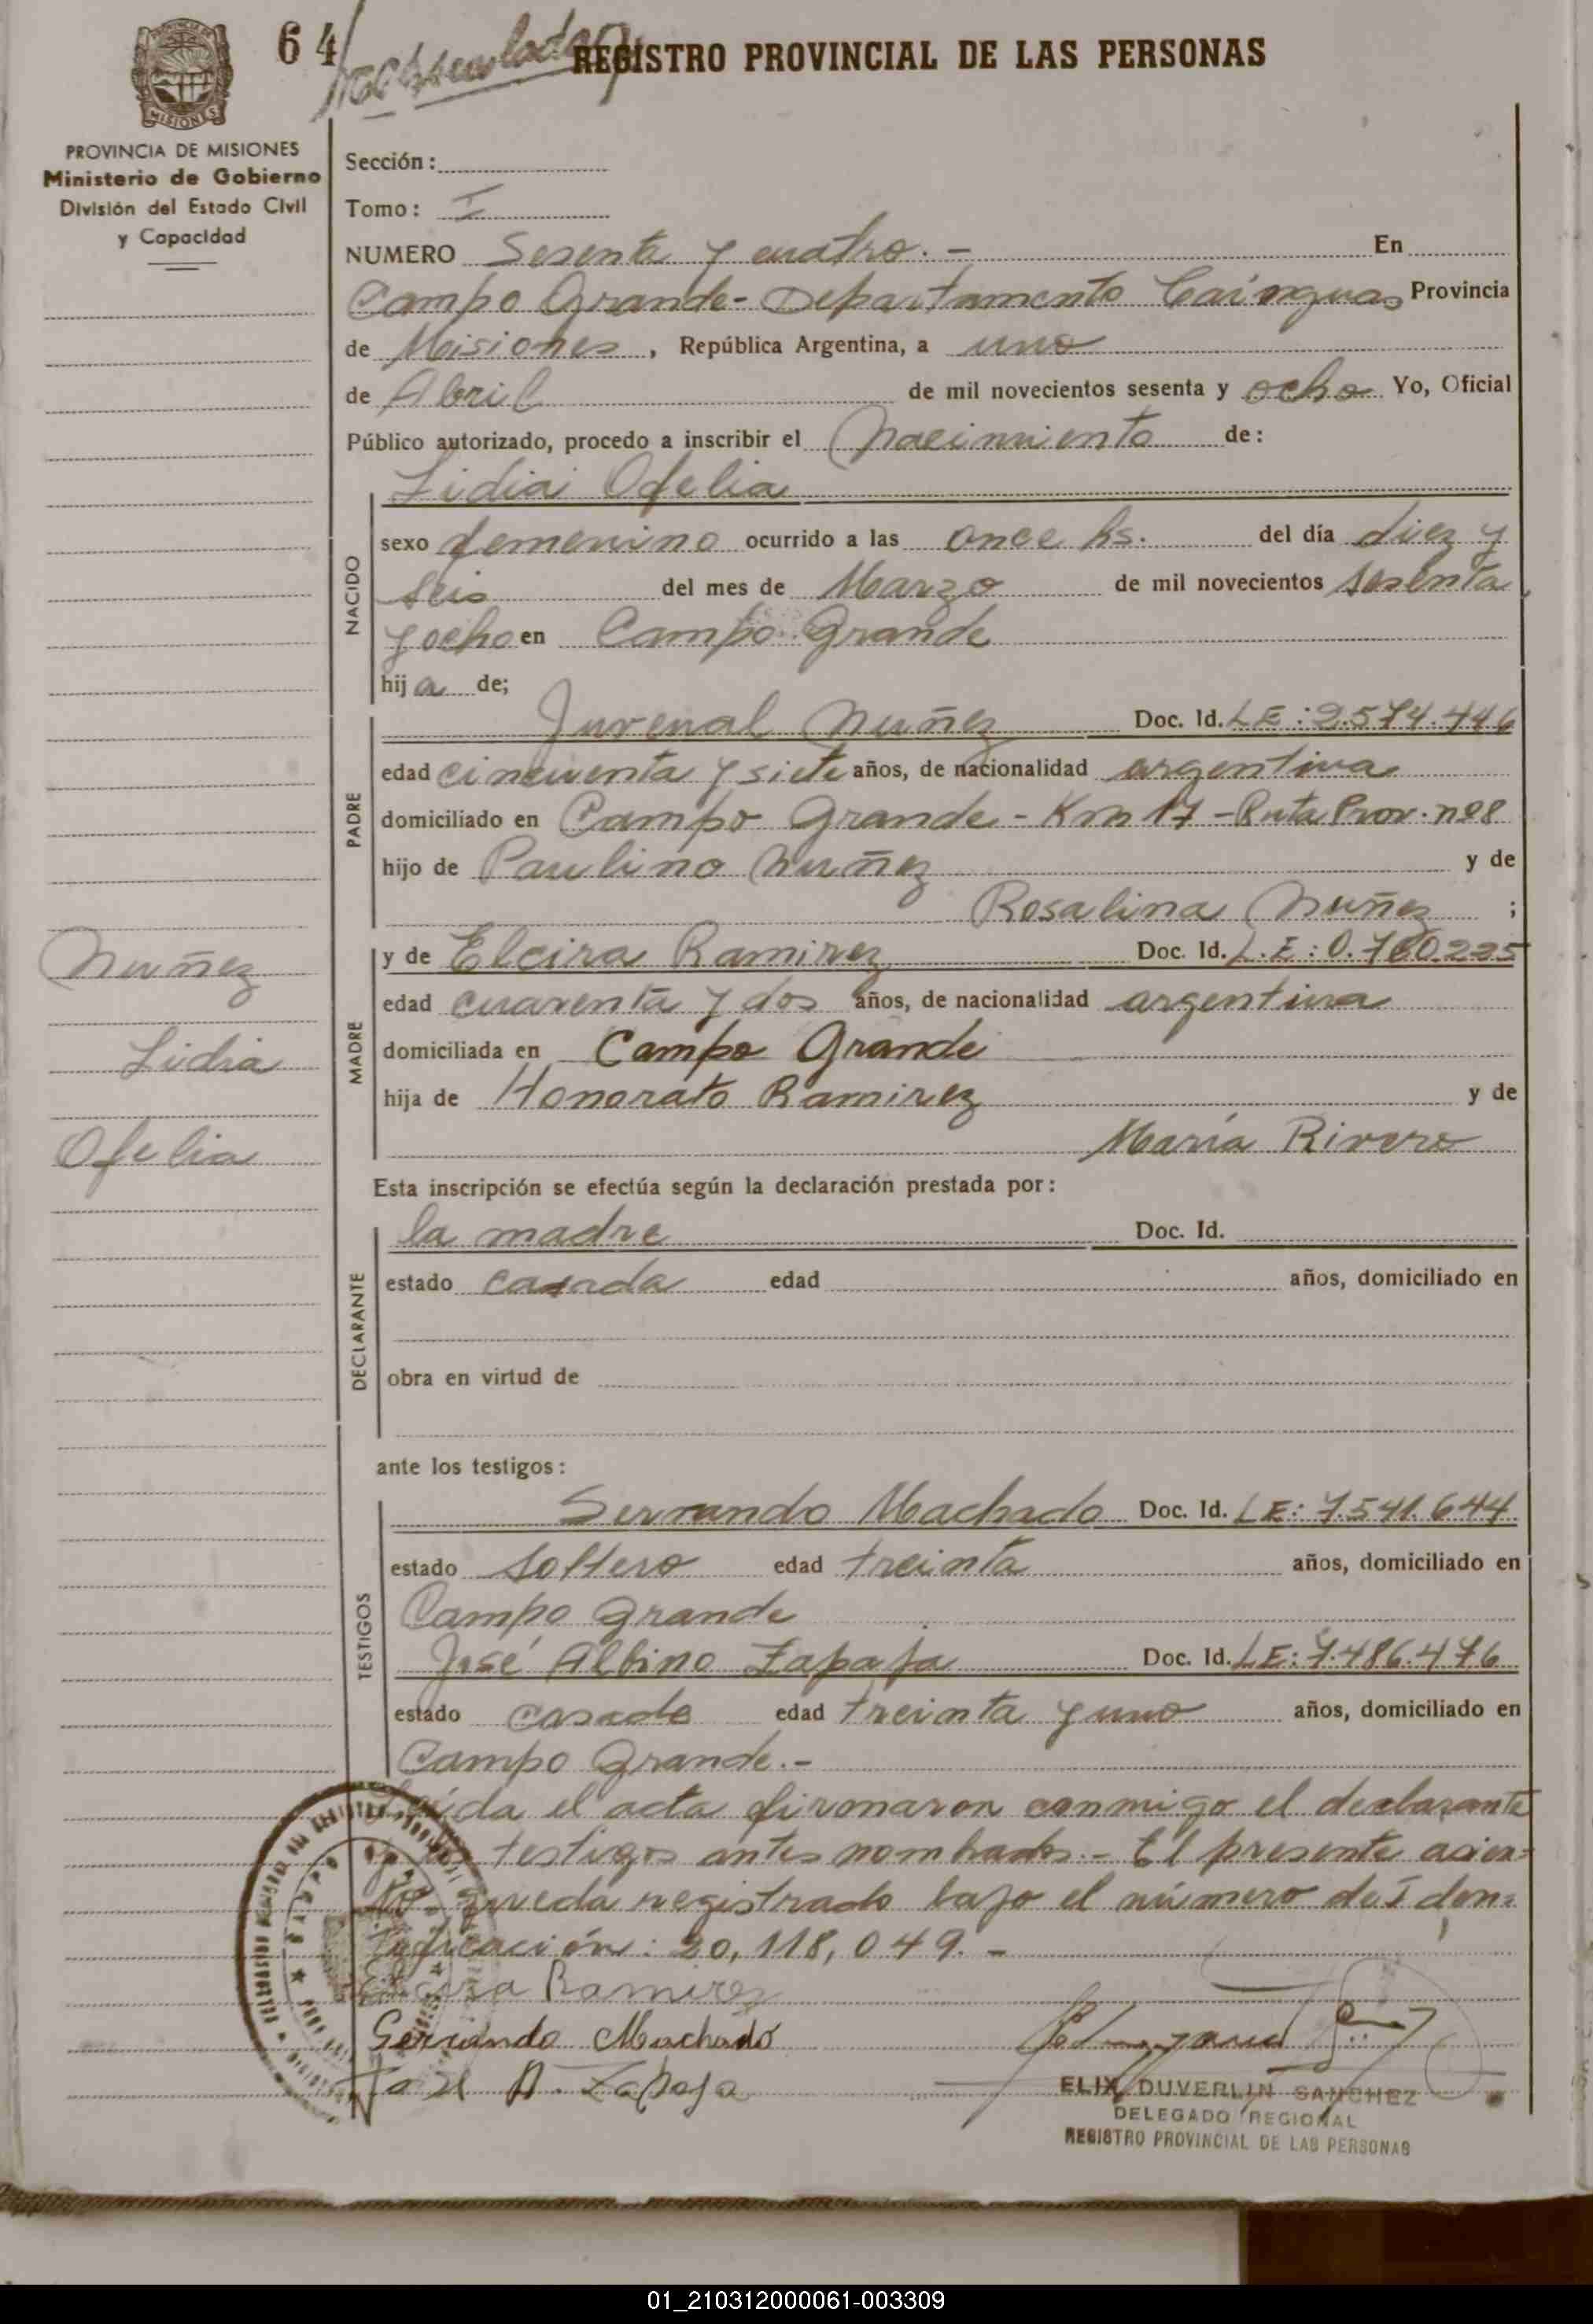 64
REGISTRO PROVINCIAL DE LAS PERSONAS
MISIONES
PROVINCIA DE MISIONES
Ministerio de Gobierno
División del Estado Civil
y Capacidad
Sección:
Tomo: I
NUMERO Sesenta y cuatro.- En
Campo Grande- Departamento Cainguas Provincia
de Misiones, República Argentina, a uno
de Abril de mil novecientos sesenta y ocho Yo, Oficial
Público autorizado, procedo a inscribir el Nacimiento de:
NACIDO
Lidia Ofelia
sexo femenino ocurrido a las once hs. del día diez y
seis del mes de Marzo de mil novecientos sesenta
y ocho en Campo Grande
hija de;
PADRE
Juvenal Nuñez Doc. Id. LE: 2.574.446
edad cincuenta y siete años, de nacionalidad argentina
domiciliado en Campo Grande - Km 17 - Ruta Prov. nº8
hijo de Paulino Nuñez y de
Rosalina Nuñez ;
MADRE
y de Elcira Ramirez Doc. Id. L.E: 0.760.225
edad cuarenta y dos años, de nacionalidad argentina
domiciliada en Campo Grande
hija de Honorato Ramirez y de
María Rivero
Nuñez
Lidia
Ofelia
Esta inscripción se efectúa según la declaración prestada por:
DECLARANTE
la madre Doc. Id.
estado casada edad años, domiciliado en
obra en virtud de
ante los testigos:
TESTIGOS
Servando Machado Doc. Id. LE: 7.541.644
estado soltero edad treinta años, domiciliado en
Campo Grande
José Albino Zapaja Doc. Id. LE: 7.486.476
estado casado edad treinta y uno años, domiciliado en
Campo Grande.-
Leída el acta firmaron conmigo el declarante
y los testigos antes nombrados.- El presente asien-
to queda registrado bajo el número de Iden-
tificación: 20,118,049.-
Elcira Ramirez
Servando Machado
José A. Zapaja
ELIX DUVERLIN SANCHEZ
DELEGADO REGIONAL
REGISTRO PROVINCIAL DE LAS PERSONAS
01_210312000061-003309